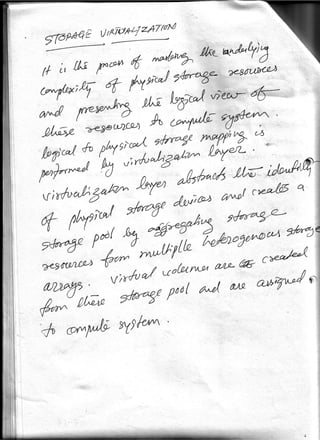 STORAGE VIRTUALIZATION
It is the process of masking the underlying
complexity of physical storage resources
and presenting the logical view of
these resources to compute system.
logical to physical storage mapping is
performed by virtualization layer.
virtualization layer abstracts the identity
of physical storage devices and creates a
storage pool by aggregating storage
resources from multiplle heterogenous storage
arrays. Virtual volumes are created
from these storage pool and are assigned
to compute system.